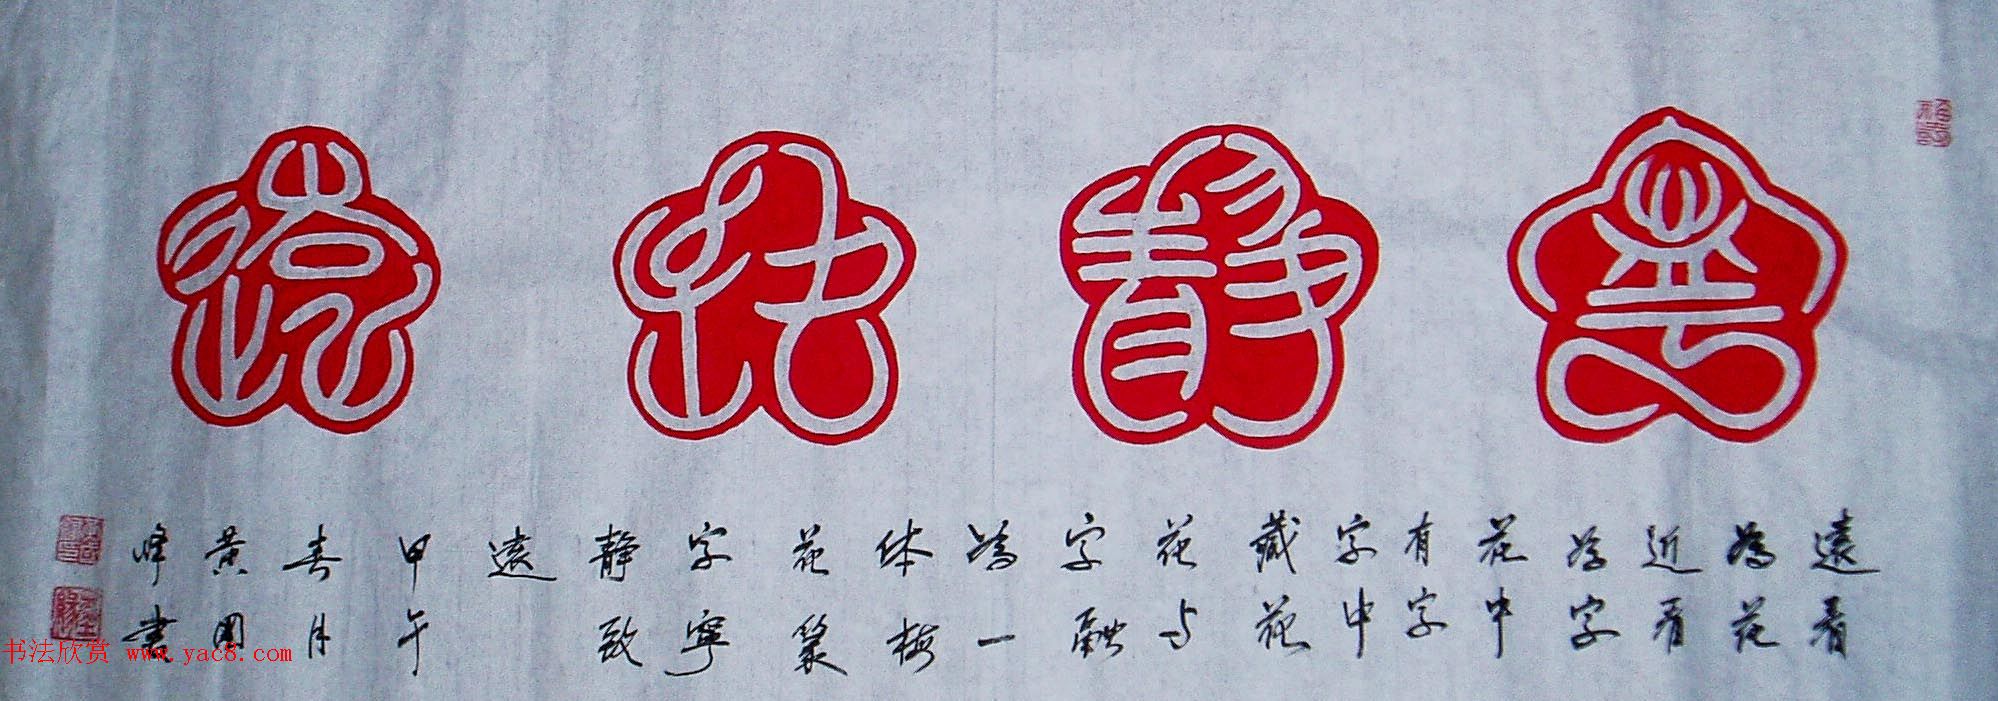 寧靜致遠
遠看
為花
近看
為字
花中
有字
字中
藏花
花与
字融
為一
体梅
花篆
字寧
静致
遠
甲午
春月
黄國
峰書
书法欣赏 www.yac8.com